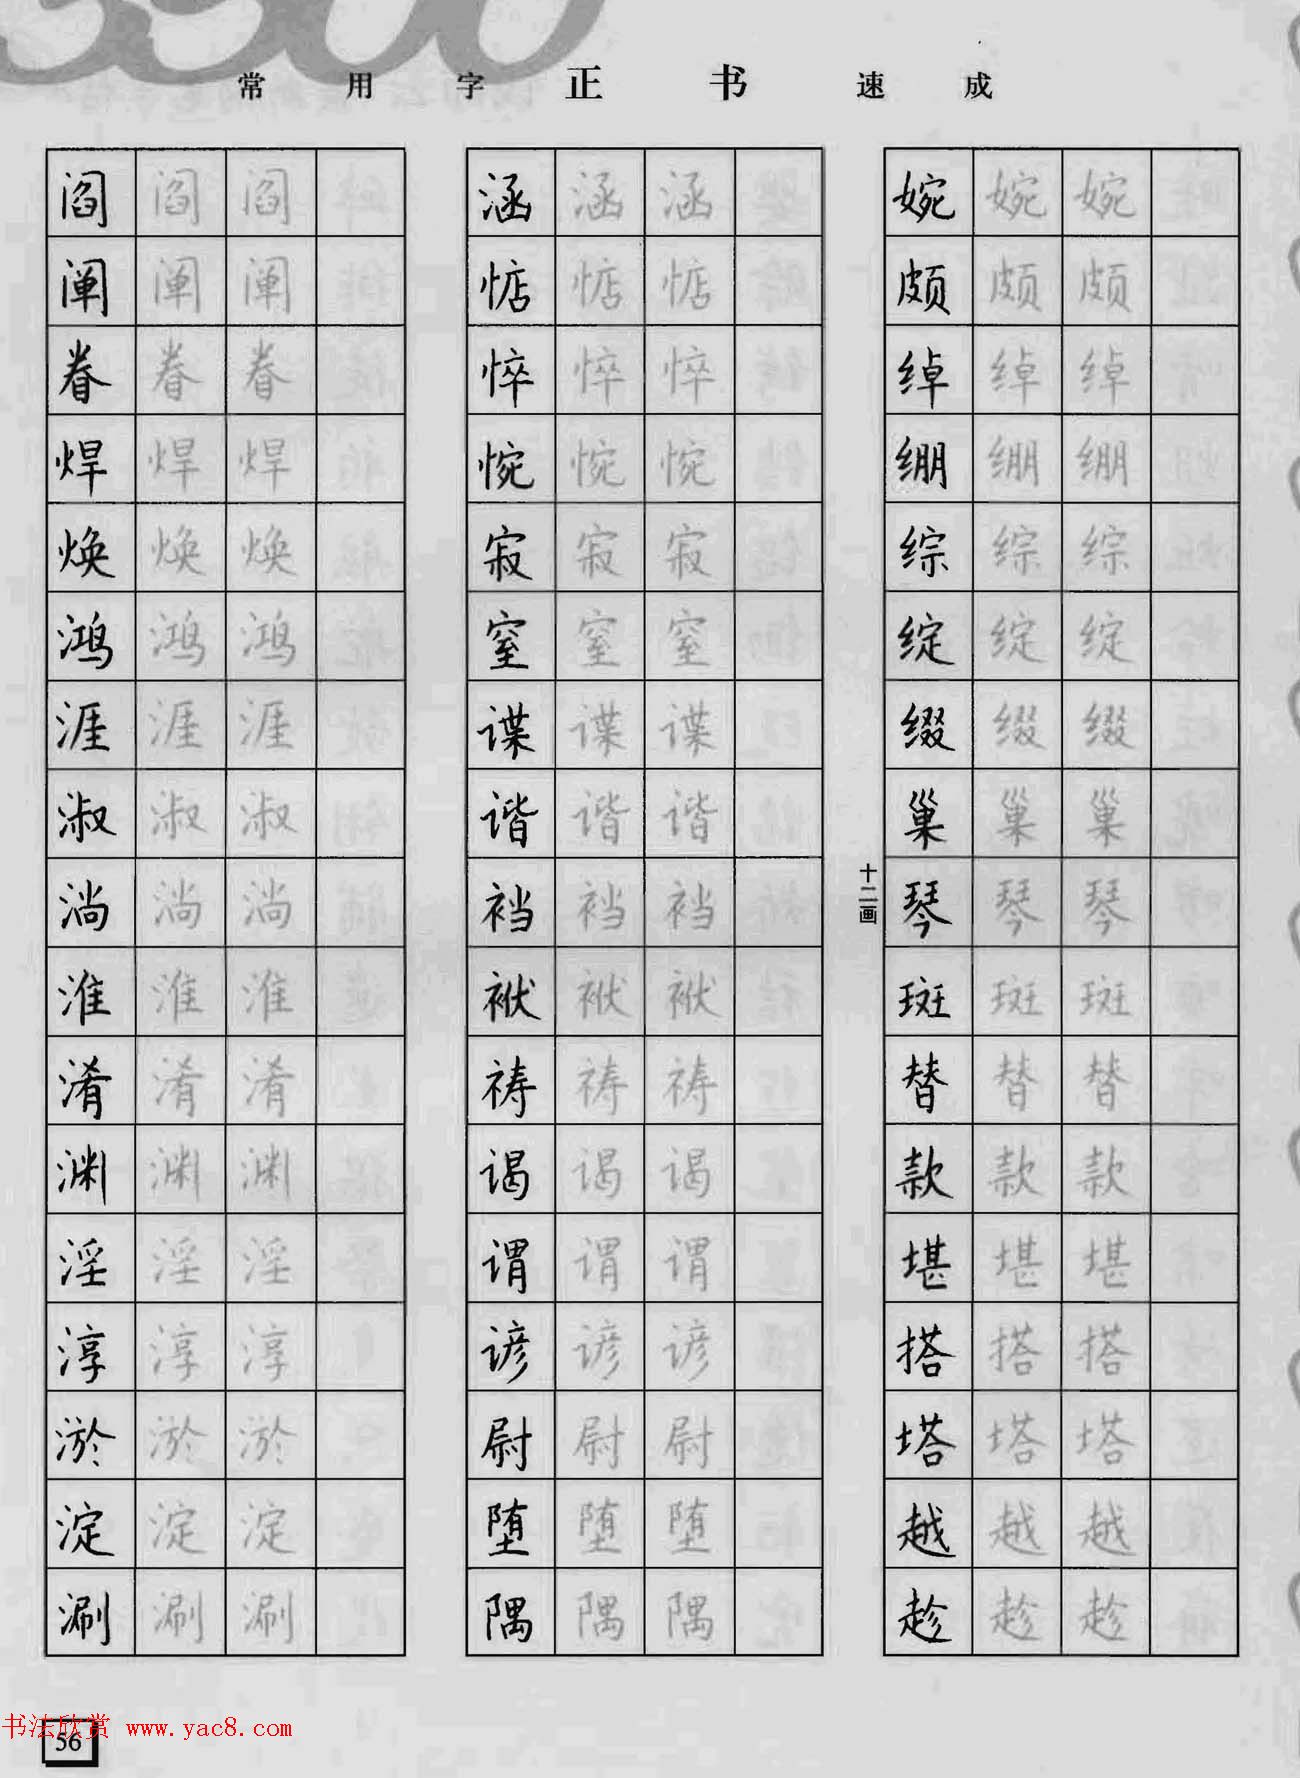 3500
常用字正书速成
阎 阎 阎 涵 涵 涵 婉 婉 婉
阐 阐 阐 惦 惦 惦 颇 颇 颇
眷 眷 眷 悴 悴 悴 绰 绰 绰
焊 焊 焊 惋 惋 惋 绷 绷 绷
焕 焕 焕 寂 寂 寂 综 综 综
鸿 鸿 鸿 窒 窒 窒 绽 绽 绽
涯 涯 涯 谍 谍 谍 缀 缀 缀
淑 淑 淑 谐 谐 谐 巢 巢 巢
淌 淌 淌 裆 裆 裆 十二画 琴 琴 琴
淮 淮 淮 袱 袱 袱 斑 斑 斑
淆 淆 淆 祷 祷 祷 替 替 替
渊 渊 渊 谒 谒 谒 款 款 款
淫 淫 淫 谓 谓 谓 堪 堪 堪
淳 淳 淳 谚 谚 谚 搭 搭 搭
淤 淤 淤 尉 尉 尉 塔 塔 塔
淀 淀 淀 堕 堕 堕 越 越 越
涮 涮 涮 隅 隅 隅 趁 趁 趁
书法欣赏 www.yac8.com
56